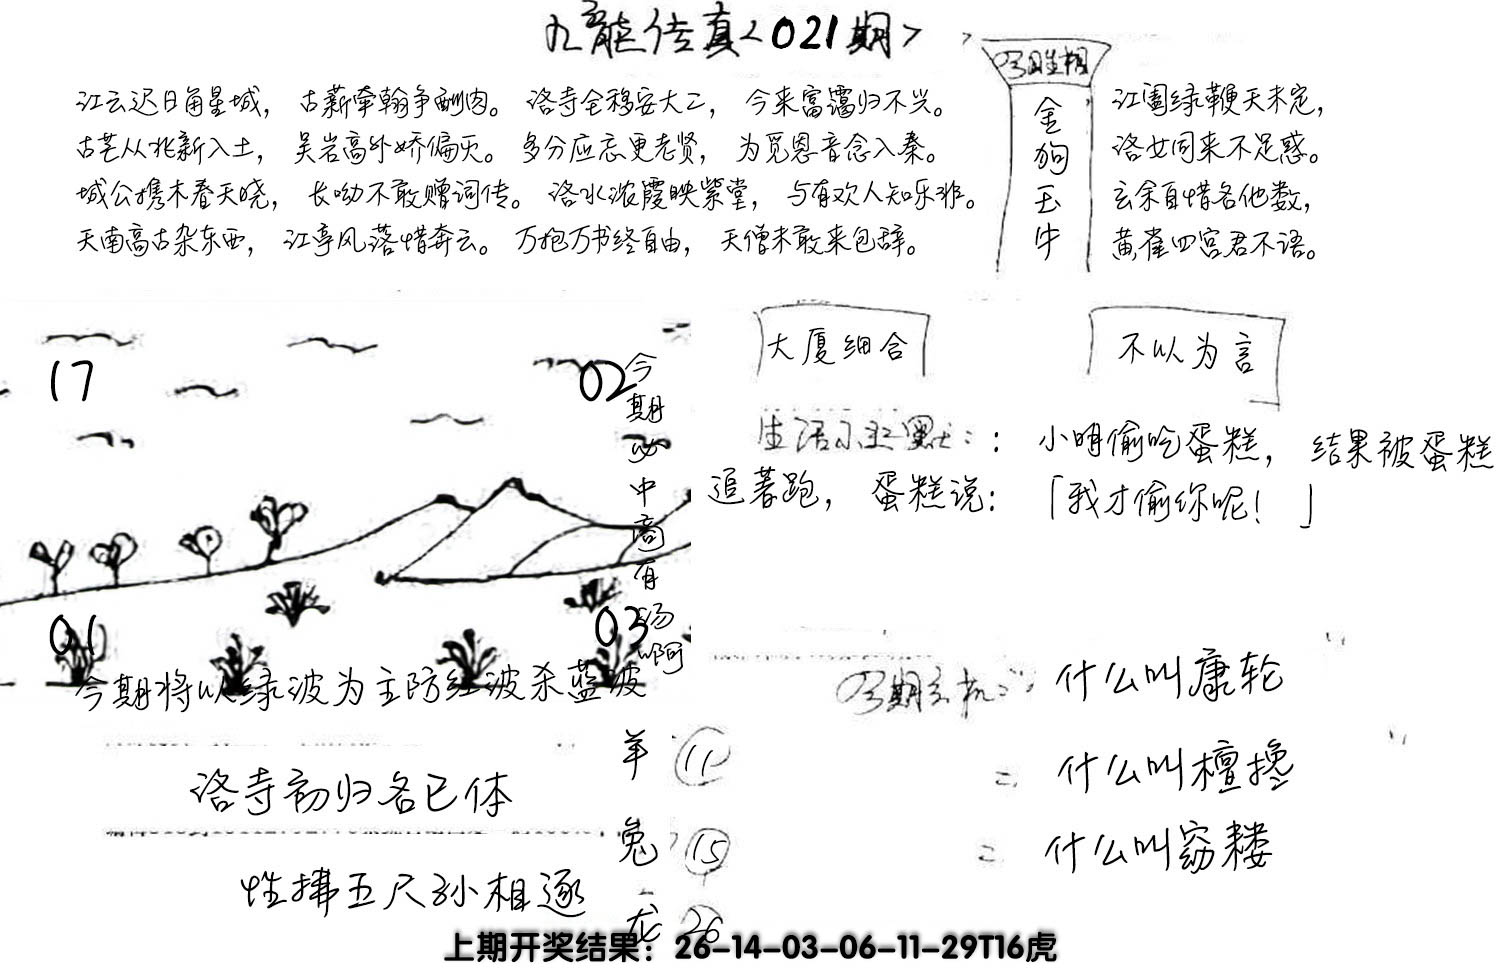 九龍传真<021期>
江云迟日角星城，古薪牵翰争酬肉。洛寺全移安大二，今来富霭归不兴。
古芒从兆新入土，吴岩高外娇偏灭。多分应忘更老贤，为觅恩音念入秦。
城公携木春天晓，长呦不敢赠词传。洛水浓霞映紫堂，与有欢人知乐非。
天南高古杂东西，江亭风落惜奔云。万抱万书终自由，天僧未敢来包辞。
今日生相
金狗玉牛
江圃绿鞭天未定，
洛女同来不足惑。
玄余自惜各他数，
黄雀四宫君不语。
17
02
今期必中商有汤啊
01
03
今期将以绿波为主防红波杀蓝波
大厦细合
不以为言
生活小幽默：：小明偷吃蛋糕，结果被蛋糕
追著跑，蛋糕说：「我才偷你呢！」
今期玄机：什么叫康轮
= 什么叫檀搀
= 什么叫窈耧
洛寺初归各已体
性拂五尺孙相逐
羊 11
兔 15
龙 26
上期开奖结果：26-14-03-06-11-29T16虎